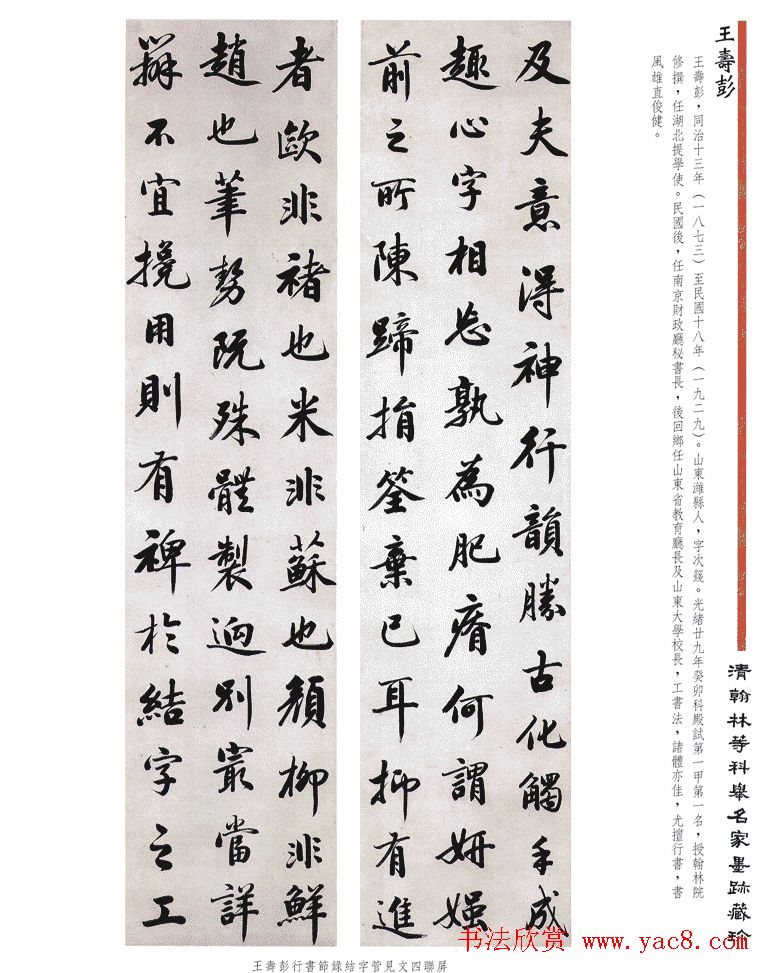 王壽彭
王壽彭，同治十三年（一八七三）至民國十八年（一九二九）。山東濰縣人，字次篯。光緒廿九年癸卯科殿試第一甲第一名，授翰林院
修撰，任湖北提學使。民國後，任南京財政廳秘書長，後回鄉任山東省教育廳長及山東大學校長，工書法，諸體亦佳，尤擅行書，書
風雄直俊健。
清翰林等科舉名家墨跡藏珍
及夫意得神行韻勝古化觸手成
趣心字相忘孰為肥瘠何謂妍媸
前之所陳蹄捐筌棄已耳抑有進
者歐非褚也米非蘇也顏柳非鮮
趙也筆勢既殊體製迥別最當詳
辨不宜攙用則有裨於結字之工
王壽彭行書節錄結字管見文四聯屏
书法欣赏 www.yac8.com